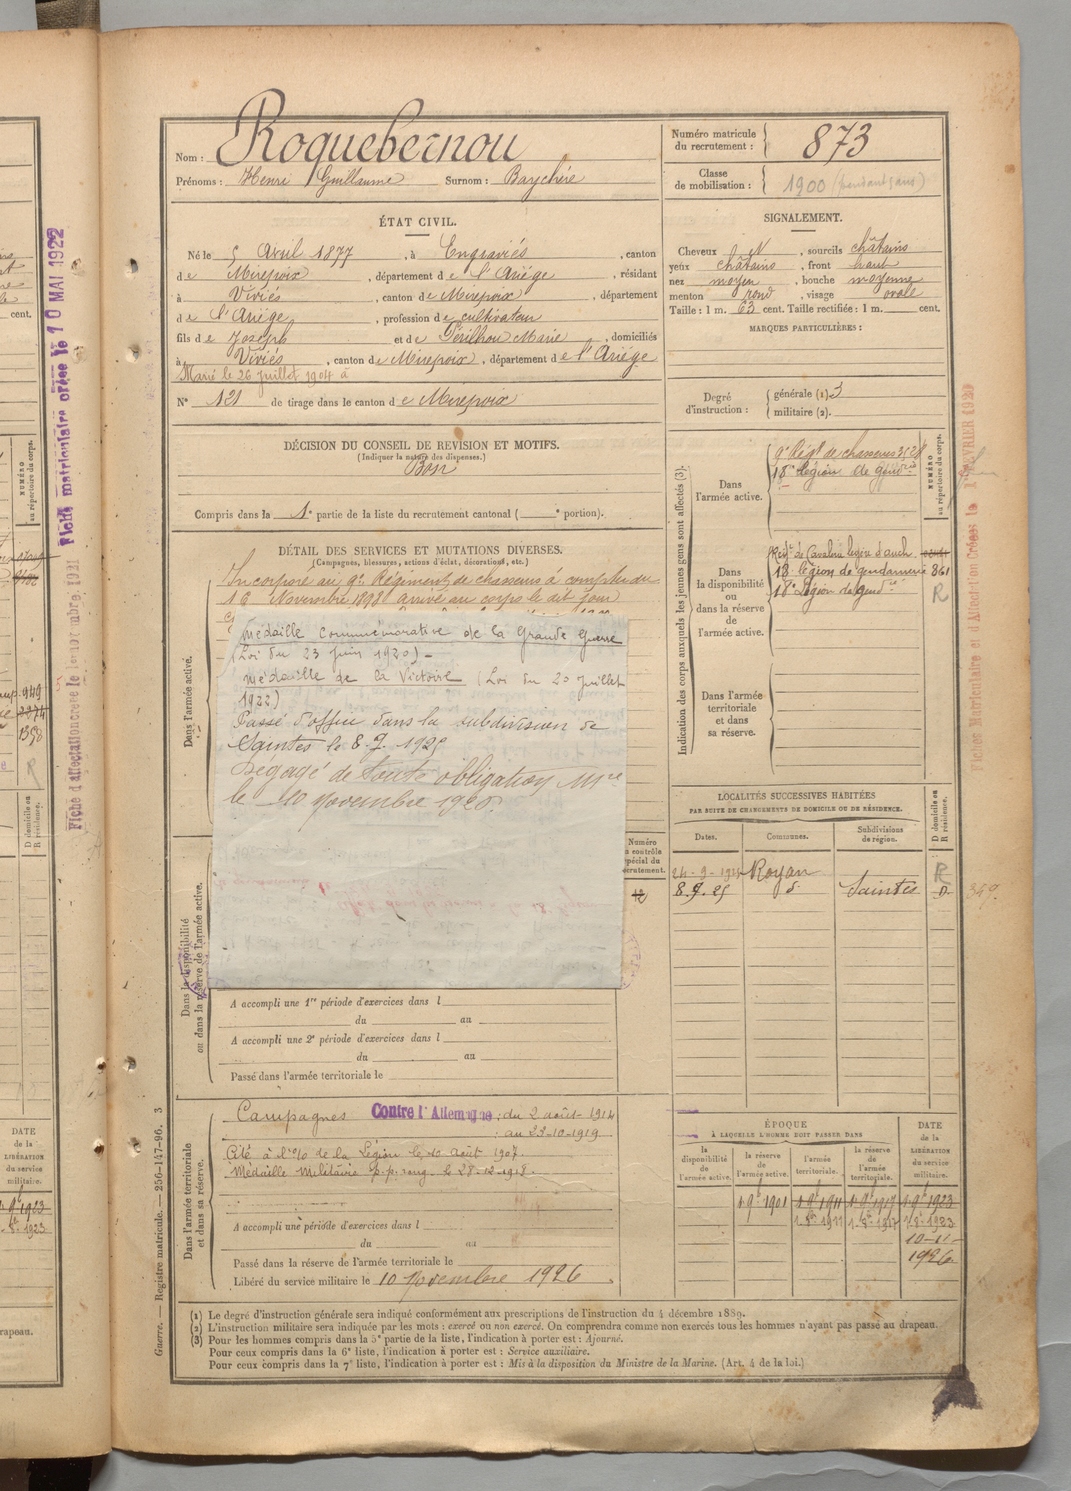 Nom : Roquebernou
Prénoms : Henri Guillaume Surnom : Baychère
Numéro matricule du recrutement : 873
Classe de mobilisation : 1900 (pendant 5 ans)
ÉTAT CIVIL.
Né le 5 Avril 1877, à Engraviés, canton
de Mirepoix, département de l'Ariège, résidant
à Viviés, canton de Mirepoix, département
de l'Ariège, profession de cultivateur
fils de Joseph et de Périlhou Marie, domiciliés
à Viviés, canton de Mirepoix, département de l'Ariège
Marié le 26 juillet 1904 à
N° 121 de tirage dans le canton de Mirepoix
SIGNALEMENT.
Cheveux N, sourcils châtains
yeux châtains, front haut
nez moyen, bouche moyenne
menton rond, visage ovale
Taille : 1 m. 63 cent. Taille rectifiée : 1 m. cent.
MARQUES PARTICULIÈRES :
Degré d'instruction : générale (1) 3
militaire (2).
DÉCISION DU CONSEIL DE REVISION ET MOTIFS.
(Indiquer la nature des dispenses.)
Bon
Compris dans la 1e partie de la liste du recrutement cantonal ( e portion).
DÉTAIL DES SERVICES ET MUTATIONS DIVERSES.
(Campagnes, blessures, actions d'éclat, décorations, etc.)
Incorporé au 9e Régiment de chasseurs à compter du
16 Novembre 1898 arrivé au corps le dit jour
Médaille Commémorative de la Grande Guerre
(Loi du 23 juin 1920) –
Médaille de la Victoire (Loi du 20 juillet
1922)
Passé d'office dans la subdivision de
Saintes le 8.9.1925
Dégagé de toute obligation Mre
le 10 Novembre 1926.
Dans l'armée active.
Dans la disponibilité ou dans la réserve de l'armée active.
Numéro
au contrôle
spécial du
recrutement.
12
A accompli une 1re période d'exercices dans l
du au
A accompli une 2e période d'exercices dans l
du au
Passé dans l'armée territoriale le
Dans l'armée territoriale et dans sa réserve.
Campagnes Contre l'Allemagne : du 2 août 1914
: au 23-10-1919
Cité à l'o/o de la Légion le 10 Août 1907.
Médaille Militaire p.p. rang. le 28-12-1918.
A accompli une période d'exercices dans l
du au
Passé dans la réserve de l'armée territoriale le
Libéré du service militaire le 10 Novembre 1926
Indication des corps auxquels les jeunes gens sont affectés (3).
NUMÉRO
au répertoire du corps.
Dans l'armée active.
9e Régt de chasseurs
18e Légion de gendrie
Dans la disponibilité ou dans la réserve de l'armée active.
Régt de Cavalerie légère d'auch
18 légion de gendarmerie 861
18e Légion de gendrie R
Dans l'armée territoriale et dans sa réserve.
LOCALITÉS SUCCESSIVES HABITÉES
PAR SUITE DE CHANGEMENTS DE DOMICILE OU DE RÉSIDENCE.
Dates. Communes. Subdivisions de région. D domicile ou R résidence.
Royan R
8.9.25 d° Saintes D.
349.
ÉPOQUE
À LAQUELLE L'HOMME DOIT PASSER DANS
la disponibilité de l'armée active.
la réserve de l'armée active.
l'armée territoriale.
la réserve de l'armée territoriale.
DATE de la LIBÉRATION du service militaire.
1.9b 1901 1.9b 1911 1.9b 1917 1.9b 1923
1-8b 1911 1-8b-1917 1-8b-1923
10-11-
1926
(1) Le degré d'instruction générale sera indiqué conformément aux prescriptions de l'instruction du 4 décembre 1889.
(2) L'instruction militaire sera indiquée par les mots : exercé ou non exercé. On comprendra comme non exercés tous les hommes n'ayant pas passé au drapeau.
(3) Pour les hommes compris dans la 5e partie de la liste, l'indication à porter est : Ajourné.
Pour ceux compris dans la 6e liste, l'indication à porter est : Service auxiliaire.
Pour ceux compris dans la 7e liste, l'indication à porter est : Mis à la disposition du Ministre de la Marine. (Art. 4 de la loi.)
Guerre. — Registre matricule. — 256-147-96. 3
Fiche matriculaire créée le 10 MAI 1922
cent.
NUMÉRO
au répertoire du corps.
949
2274
1358
R
D domicile ou
R résidence.
DATE
de la
LIBÉRATION
du service
militaire.
1.9b 1923
drapeau.